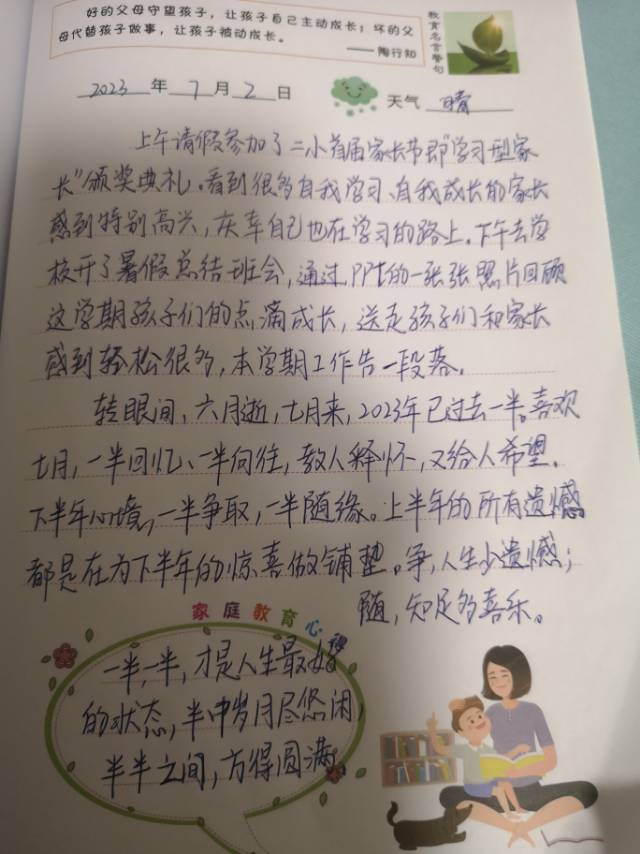 好的父母守望孩子，让孩子自己主动成长；坏的父
母代替孩子做事，让孩子被动成长。
——陶行知
教育名言警句
2023 年 7 月 2 日 天气 晴
上午请假参加了二小首届家长节即“学习型家
长”颁奖典礼。看到很多自我学习、自我成长的家长
感到特别高兴，庆幸自己也在学习的路上。下午去学
校开了暑假总结班会，通过PPt的一张张照片回顾
这学期孩子们的点滴成长，送走孩子们和家长
感到轻松很多，本学期工作告一段落。
转眼间，六月逝，七月来，2023年已过去一半。喜欢
七月，一半回忆、一半向往，教人释怀，又给人希望。
下半年心境，一半争取，一半随缘。上半年的所有遗憾
都是在为下半年的惊喜做铺垫。争，人生少遗憾；
随，知足多喜乐。
家庭教育心得
一半，一半，才是人生最好
的状态，半中岁月尽悠闲，
半半之间，方得圆满。